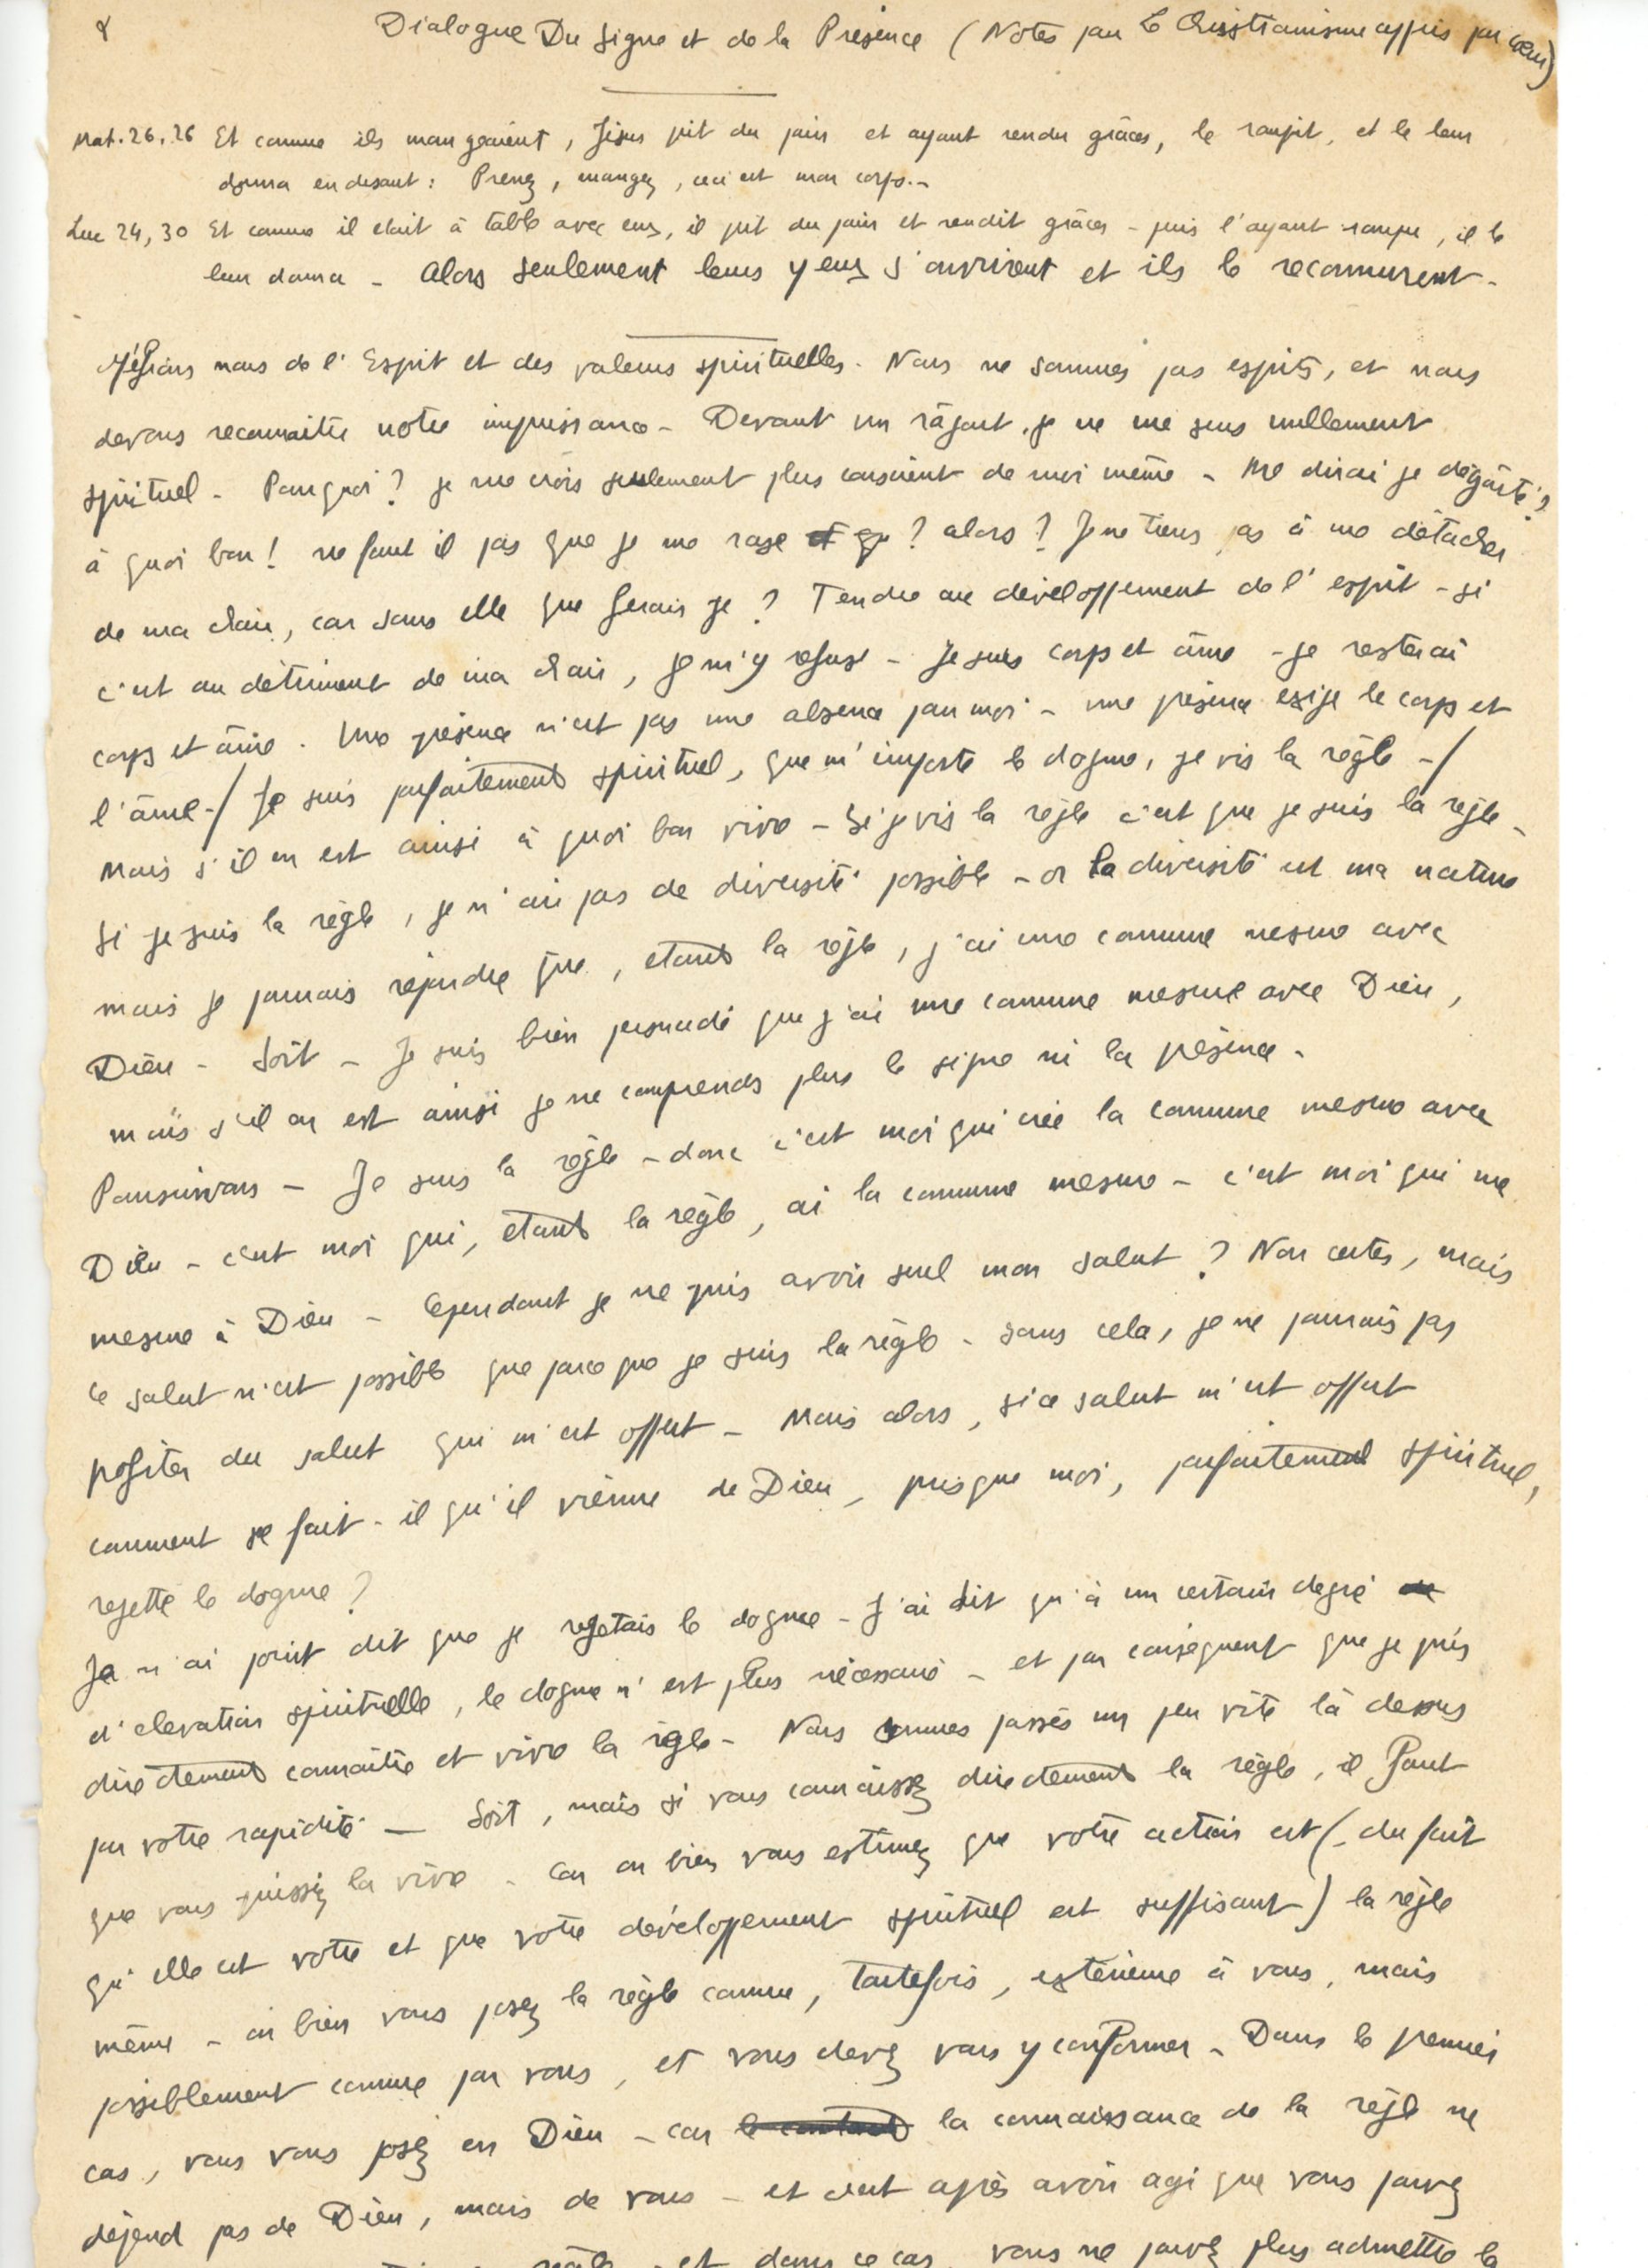 Dialogue Du Signe et de la Présence (Notes pour le Christianisme appris par cœur)
Mat. 26.26 Et comme ils mangeaient, Jésus prit du pain et ayant rendu grâces, le rompit, et le leur
donna en disant : Prenez, mangez, ceci est mon corps. -
Luc 24, 30 Et comme il était à table avec eux, il prit du pain et rendit grâces - puis l'ayant rompu, il le
leur donna - Alors seulement leurs yeux s'ouvrirent et ils le reconnurent -
Méfions nous de l'Esprit et des valeurs spirituelles. Nous ne sommes pas esprits, et nous
devons reconnaître notre impuissance - Devant un je ne me sens nullement
spirituel - Pourquoi ? je me crois seulement plus conscient de moi même - Me dirai je dégoûté ?
à quoi bon ! ne faut il pas que je me rase ? alors ? Je ne tiens pas à me détacher
de ma chair, car sans elle que ferais je ? Tendre au développement de l'esprit - si
c'est au détriment de ma chair, je m'y refuse - Je suis corps et âme - je resterai
corps et âme. Une présence n'est pas une absence pour moi - une présence exige le corps et
l'âme -/ Je suis parfaitement spirituel, que m'importe le dogme, je vis la règle -/
Mais s'il en est ainsi à quoi bon vivre - Si je vis la règle c'est que je suis la règle -
Si je suis la règle, je n'ai pas de diversité possible - or la diversité est ma nature
mais je pourrais répondre que, étant la règle, j'ai une commune mesure avec
Dieu - Soit - Je suis bien persuadé que j'ai une commune mesure avec Dieu,
mais s'il en est ainsi je ne comprends plus le signe ni la présence -
Poursuivons - Je suis la règle - donc c'est moi qui crée la commune mesure avec
Dieu - c'est moi qui, étant la règle, ai la commune mesure - c'est moi qui me
mesure à Dieu - Cependant je ne puis avoir seul mon salut ? Non certes, mais
ce salut n'est possible que parce que je suis la règle - sans cela, je ne pourrais pas
profiter du salut qui m'est offert - Mais alors, si ce salut m'est offert
comment se fait-il qu'il vienne de Dieu, puisque moi, parfaitement spirituel,
rejette le dogme ?
Je n'ai point dit que je rejetais le dogme - J'ai dit qu'à un certain degré
d'elevation spirituelle, le dogme n'est plus nécessaire - et par conséquent que je puis
directement connaître et vivre la règle - Nous sommes passés un peu vite là dessus
par votre rapidité - Soit, mais si vous connaissez directement la règle, il faut
que vous puissiez la vivre - Car ou bien vous estimez que votre action est (du fait
qu'elle est votre et que votre développement spirituel est suffisant) la règle
même - ou bien vous posez la règle comme, toutefois, extérieure à vous, mais
possiblement connue par vous, et vous devez vous y conformer - Dans le premier
cas, vous vous posez en Dieu - car la connaissance de la règle ne
dépend pas de Dieu, mais de vous - et c'est après avoir agi que vous pouvez
règle - et dans ce cas, vous ne pouvez plus admettre la